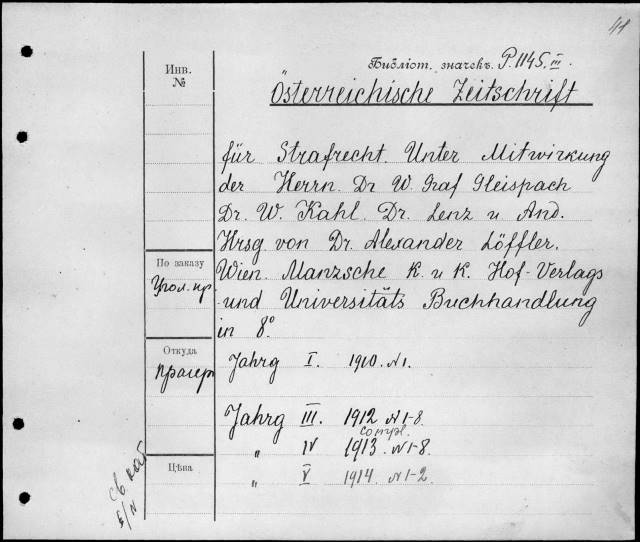 41
Библіот. значекъ. P. 1145. III.
Инв.
№
Österreichische Zeitschrift
für Strafrecht. Unter Mitwirkung
der Herrn. Dr W. Graf Gleispach
Dr. W. Kahl. Dr. Lenz u And.
Hrsg von Dr. Alexander Löffler.
По заказу
Угол. пр.
Wien. Manzsche K. u K. Hof-Verlags
und Universitäts Buchhandlung
in 8°.
Откуда
Прагеръ
Jahrg I. 1910. N1.
Jahrg III. 1912 N1-8.
compl.
„ IV 1913. N1-8.
Цѣна
„ V 1914. N1-2.
св. кат